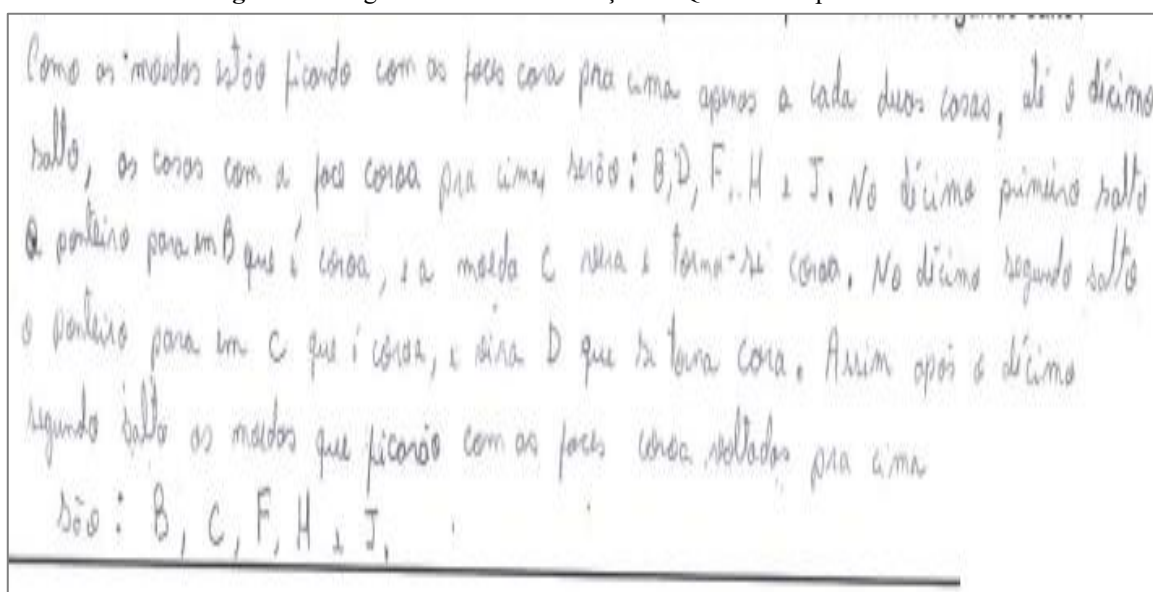 Como as moedas estão ficando com as faces cara pra cima apenas a cada duas casas, até o décimo
salto, as casas com a face coroa pra cima, serão: B, D, F, H e J. No décimo primeiro salto
o ponteiro para em B que é coroa, e a moeda C vira e torna-se coroa. No décimo segundo salto
o ponteiro para em C que é coroa, e vira D que se torna cara. Assim após o décimo
segundo salto as moedas que ficarão com as faces coroa voltadas pra cima
são: B, C, F, H e J.